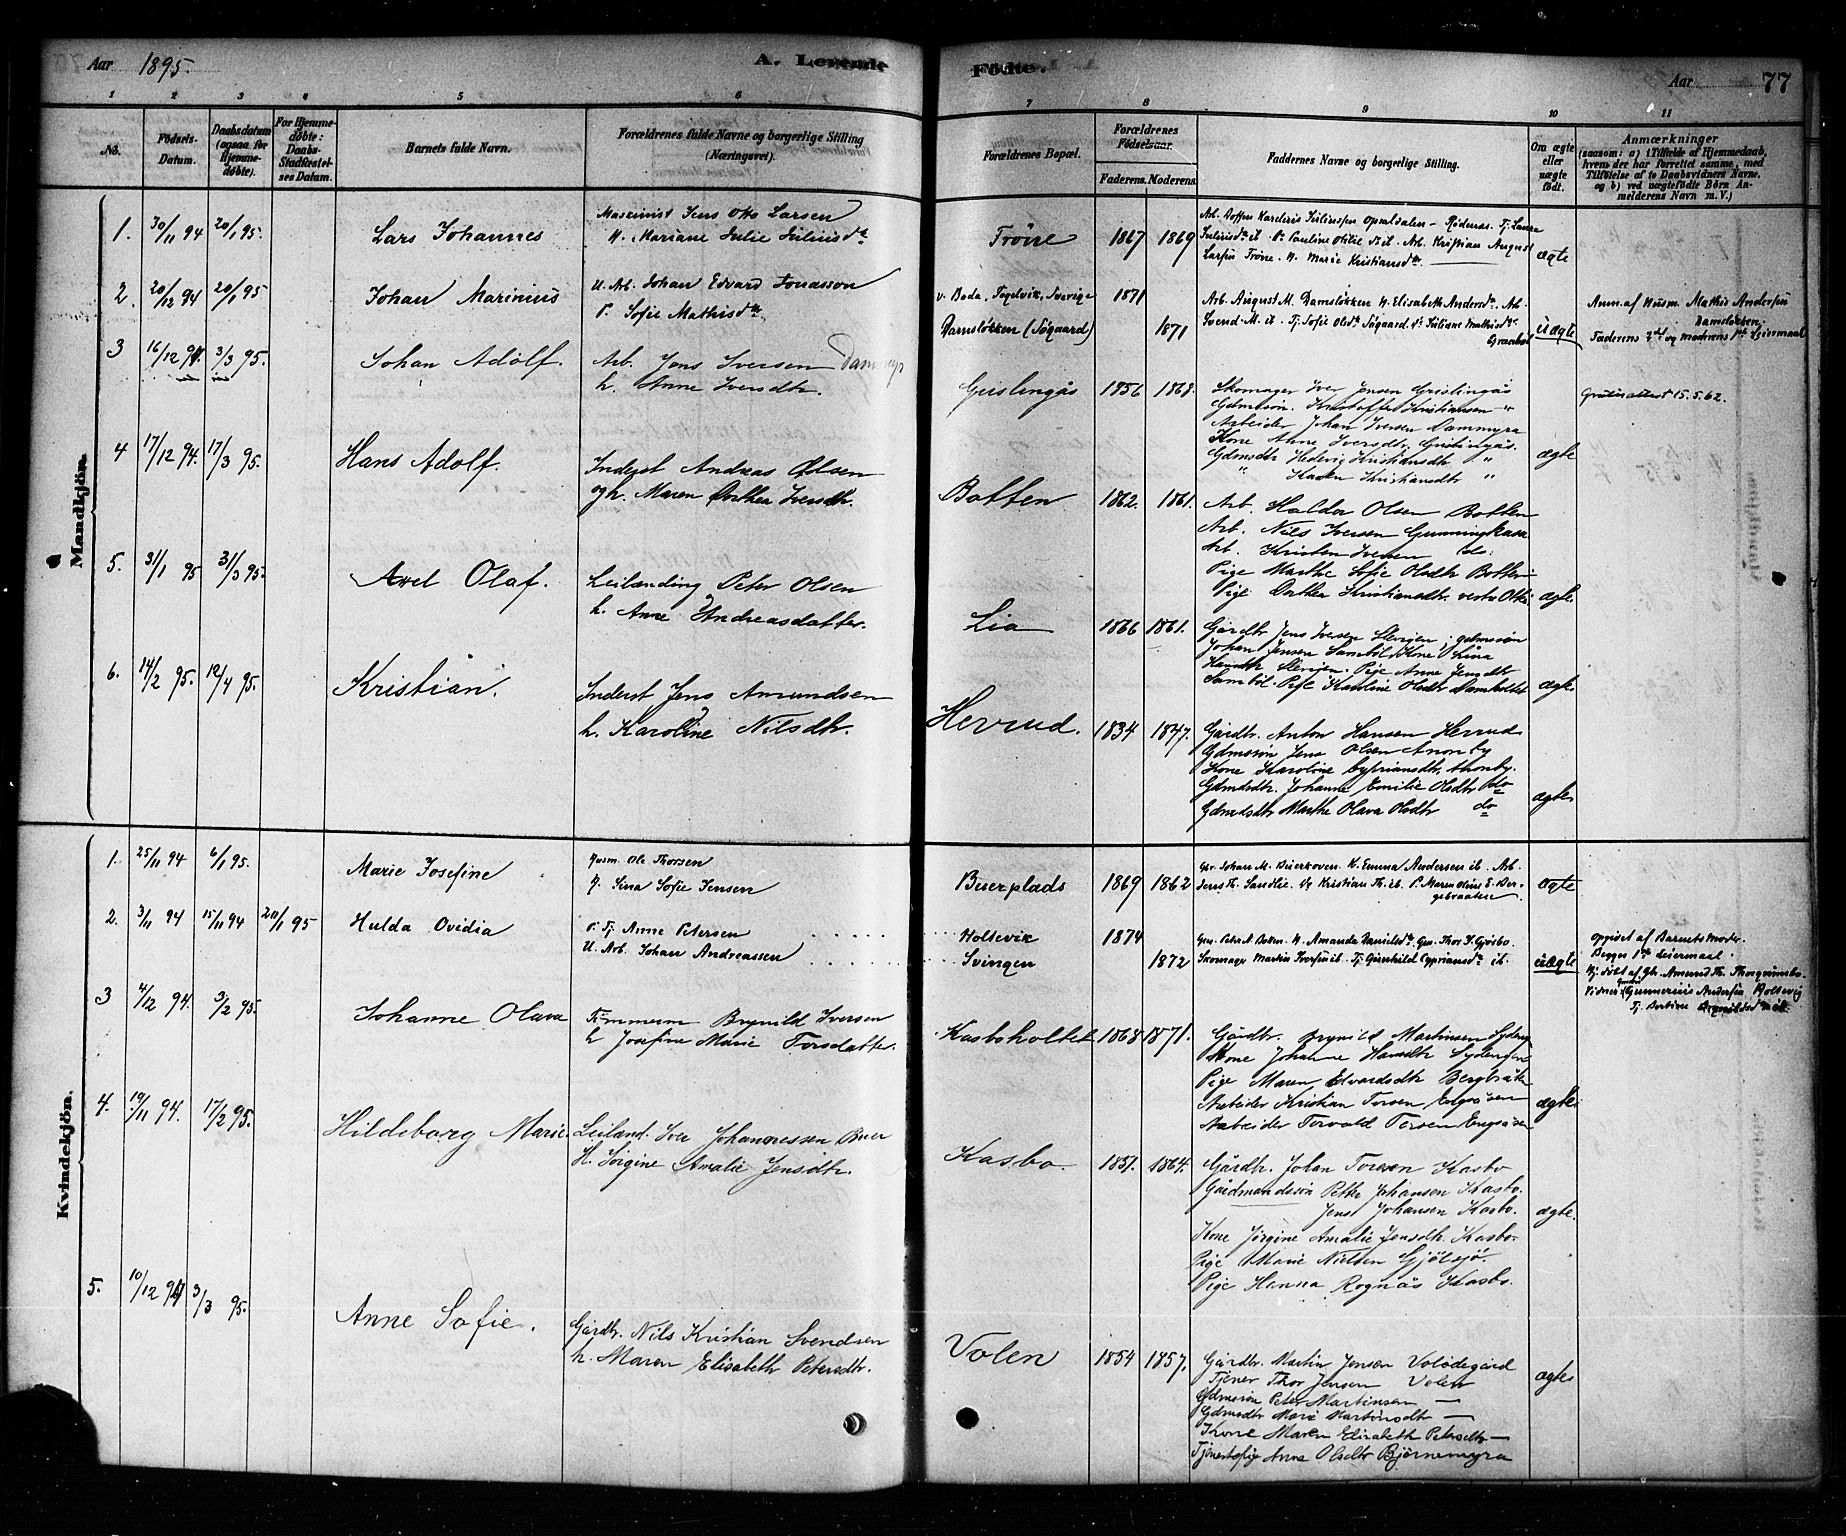 Aar 1895.
A. Levende
Födte.
Aar
77
1 2 3 4 5 6 7 8 9 10 11
No.
Födsels-
Datum.
Daabsdatum
(ogsaa for
Hjemme-
döbte).
For Hjemme-
döbte:
Daabs-
Stadfæstel-
ses Datum.
Barnets fulde Navn.
Forældrenes fulde Navne og borgerlige Stilling
(Næringsvei).
Forældrenes Bopæl.
Forældrenes
Födselsaar.
Faderens. Moderens.
Faddernes Navne og borgerlige Stilling.
Om ægte
eller
uægte
födt.
Anmærkninger
(saasom: a) i Tilfælde af Hjemmedaab,
hvem der har forrettet samme, med
Tilföielse af to Daabsvidners Navne.
og b) ved uægtefödte Börn An-
melderens Navn m. V.)
Mandkjön.
1. 30/11 94 20/1 95. Lars Johannes
Maskinist Jens Otto Larsen
H. Mariane Julie Juliusdt.
Tröne 1867 1869
Larsen Tröne. H. Marie Kristiansdt.
ægte
2. 20/12 94 20/1 95 Johan Marinius
U. Arb. Johan Edvard Jonasson
P. Sofie Mathisdt.
v. Boda, Sverige 1871
Damslökken (Sögaard) 1871
Arb. August M. Damslökken H. Elisabeth Andersdt. Arb.
Svend M. ib. Tj. Sofie Olsdt. Sögaard. P. Juliane Mathisdt.
uægte
Anm. af Husm. Mathis Andersen
Damslökken
Faderens 2det og Moderens 1ste Leiermaal
3 16/12 94. 3/3 95. Johan Adolf.
Arb. Jens Iversen Dammyr
h. Anne Iversdtr.
Geislingås 1856 1868.
Skomager Iver Jensen Geislingås
Gdmssön. Kristoffer Kristiansen "
Arbeider Johan Iversen Dammyra
Kone Anne Iversdtr. Geislingås.
Gdmsdtr Hedevig Kristiansdtr "
" Karen Kristiansdtr "
ægte
15.5.62.
4 17/12 94. 17/3 95. Hans Adolf.
Inderst Andreas Olsen
og h. Maren Dorthea Iversdtr.
Botten 1862. 1861.
Arb. Haldor Olsen Botten
Arb. Nils Iversen
Arb. Kristen Iversen do.
Pige Marthe Sofie Olsdtr Botten
Pige Dorthea Kristiansdtr.
ægte.
5. 3/1 95 31/3 95. Axel Olaf.
Leilænding Peter Olsen
h. Anne Andreasdatter.
Lia 1866 1861.
Gårdbr Jens Iversen gdmssön
Johan Jensen Samböl Kone Lina
Pige Anne Jensdtr
Samböl. Pige Karoline Olsdtr Damholtet
ægte
6. 14/2 95. 12/4 95. Kristian.
Inderst Jens Amundsen
h. Karoline Nilsdtr.
Herrud. 1834 1847.
Gårdbr. Anton Hansen Herrud.
Gdmssön Jens Olsen Aronby
Kone Karoline Cyprianidtr, Aronby.
Gdmdsdtr. Johanne Emilie Olsdtr do
Gdmdsdtr Marthe Olava Olsdtr do
ægte
Kvindekjön.
1. 25/11 94 6/1 95. Marie Josefine
Husm. Ole Thorsen
H. Lina Sofie Jensen
Buerplads 1869 1862
Gbr. Johan M. Buerkoven. K. Emma Andersen ib. Arb.
Jens Th. Sandlie. Kristian Th. ib.
ægte
2. 3/11 94 15/11 94 20/1 95 Hulda Ovidia
P. Tj. Anne Petersen
U. Arb. Johan Andreassen
Holtevik 1874
Svingen 1872
H. Amanda Danielsdt.
Skomager Martin Iversen ib. Tj. Gunhild Cypriansdt. ib.
uægte
Opgivet af Barnets Moder.
Begges 1ste Leiermaal.
Gunnerius Andersen Holtevig
3 4/12 94. 3/2 95. Johanne Olava
Tömmerm Brynild Iversen
h Josefine Marie Torsdatter.
Kasboholtet 1868 1871.
Gårdbr. Brynild Martinsen Sydengen
Kone Johanne Hansdtr Sydengen
Pige Maren Edvardsdtr Bergbråten
Arbeider Kristian Torsen
Arbeider Torvald Torsen
ægte
4. 19/11 94. 17/2 95. Hildeborg Marie.
Leilænd. Iver Johannessen Buer
H. Jörgine Amalie Jensdtr.
Kasbo. 1851. 1864.
Gårdbr. Johan Torsen Kasbo
Gårdmandssön Petter Johansen Kasbo.
Jens Johansen Kasbo.
Kone Jörgine Amalie Jensdtr. Kasbo.
Pige Marie Nielsen Gjölsjö
Pige Hanna Rognås Kasbo.
ægte.
5. 10/12 94 3/3 95. Anne Sofie.
Gårdbr. Nils Kristian Svendsen
h. Maren Elisabeth Petersdtr.
Volen 1854 1857.
Gårdbr. Martin Jensen Volödegård
Tjener Thor Jensen Volen
Gdmssön Peter Martinsen —
Gdmsdtr Marie Martinsdtr —
Kone Maren Elisabeth Petersdtr —
Tjenestepige Anne Olsdtr Björnemyra
ægte